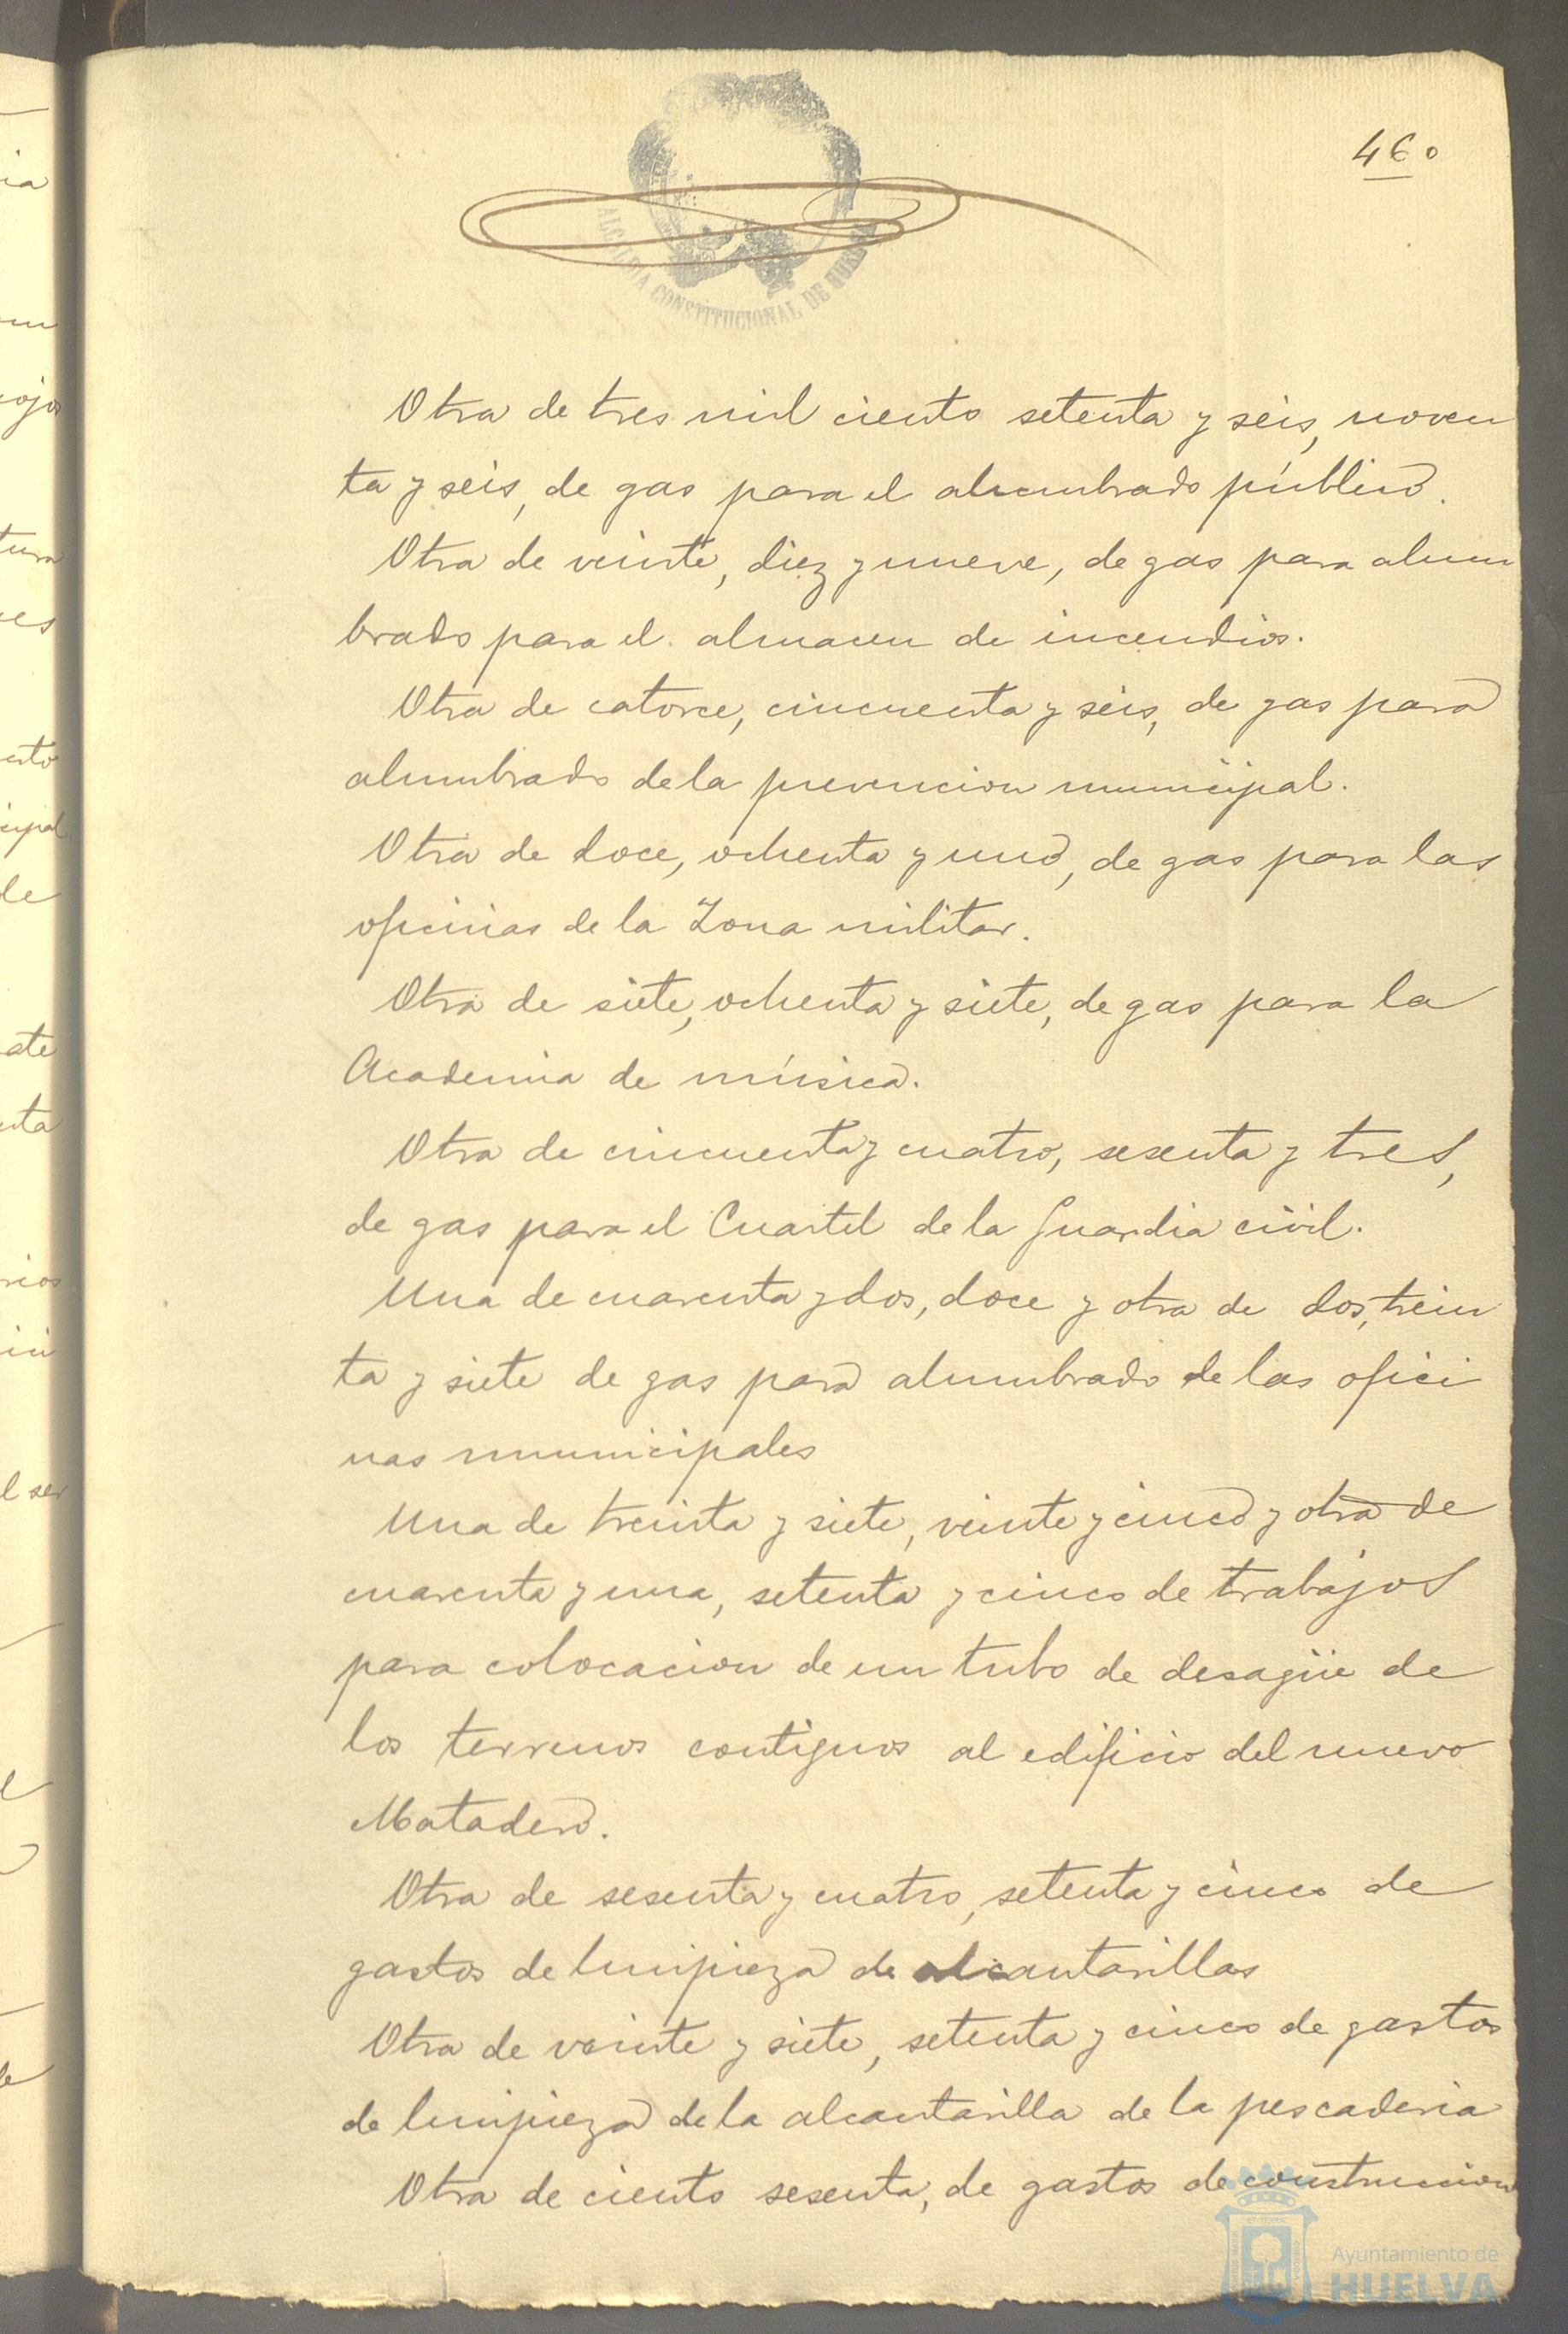 460
ALCALDIA CONSTITUCIONAL DE HUELVA
Otra de tres mil ciento setenta y seis, noven
ta y seis, de gas para el alumbrado público.
Otra de veinte, diez y nueve, de gas para alum
brado para el almacen de incendios.
Otra de catorce, cincuenta y seis, de gas para
alumbrado de la prevencion municipal.
Otra de doce, ochenta y uno, de gas para las
oficinas de la Zona militar.
Otra de siete, ochenta y siete, de gas para la
Academia de música.
Otra de cincuenta y cuatro, sesenta y tres,
de gas para el Cuartel de la Guardia civil.
Una de cuarenta y dos, doce y otra de dos, trein
ta y siete de gas para alumbrado de las ofici
nas municipales
Una de treinta y siete, veinte y cinco y otra de
cuarenta y una, setenta y cinco de trabajos
para colocacion de un tubo de desagüe de
los terrenos contiguos al edificio del nuevo
Matadero.
Otra de sesenta y cuatro, setenta y cinco de
gastos de limpieza de alcantarillas
Otra de veinte y siete, setenta y cinco de gastos
de limpieza de la alcantarilla de la pescaderia
Otra de ciento sesenta, de gastos de construccion
Ayuntamiento de
HUELVA